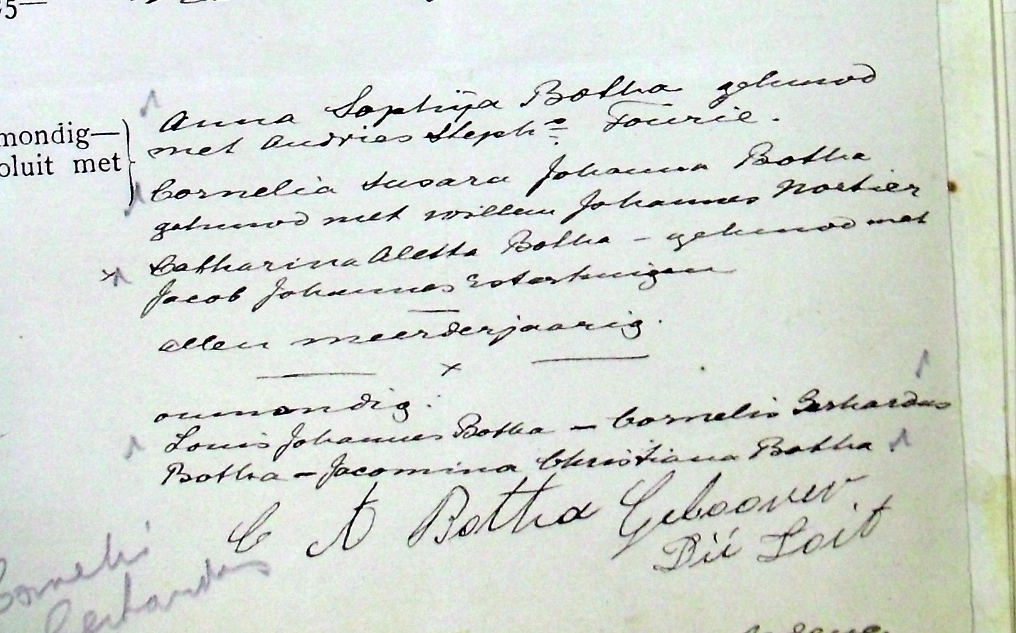 mondig—
oluit met
Anna Sophija Botha gehuwd
met Andries Stephs Fourie.
Cornelia Susara Johanna Botha
gehuwd met willem Johannes Nortier
Catharina Aletta Botha - gehuwd met
Jacob Johannes Esterhuizen
allen meerderjaarig.
x
onmondig:
Louis Johannes Botha - Cornelis Gerhardus
Botha - Jacomina Christiana Botha.
C A Botha Geboorer
Du Toit
Cornelis
Gerhardus